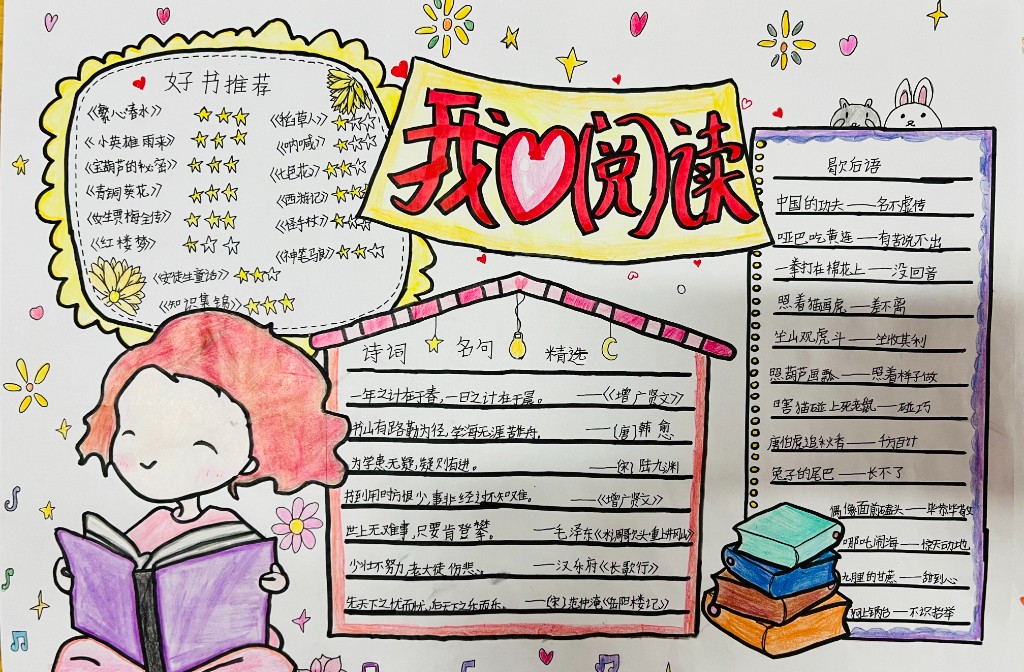 我(阅)读
好书推荐
《繁心春水》
《小英雄雨来》
《宝葫芦的秘密》
《青铜葵花》
《女生贾梅全传》
《红楼梦》
《安徒生童话》
《知识集锦》
《稻草人》
《呐喊》
《七色花》
《西游记》
《怪手杖》
《神笔马良》
诗词 名句 精选
一年之计在于春，一日之计在于晨。——《增广贤文》
书山有路勤为径，学海无涯苦作舟。——[唐]韩愈
为学患无疑，疑则有进。——[宋]陆九渊
书到用时方恨少，事非经过不知难。——《增广贤文》
世上无难事，只要肯登攀。——毛泽东《水调歌头·重上井冈山》
少壮不努力，老大徒伤悲。——汉乐府《长歌行》
先天下之忧而忧，后天下之乐而乐。——[宋]范仲淹《岳阳楼记》
歇后语
中国的功夫——名不虚传
哑巴吃黄连——有苦说不出
一拳打在棉花上——没回音
照着猫画虎——差不离
坐山观虎斗——坐收其利
照葫芦画瓢——照着样子做
瞎猫碰上死老鼠——碰巧
唐伯虎追秋香——千方百计
兔子的尾巴——长不了
偶像面前磕头——毕恭毕敬
哪吒闹海——惊天动地
九里的甘蔗——甜到心
——不识抬举